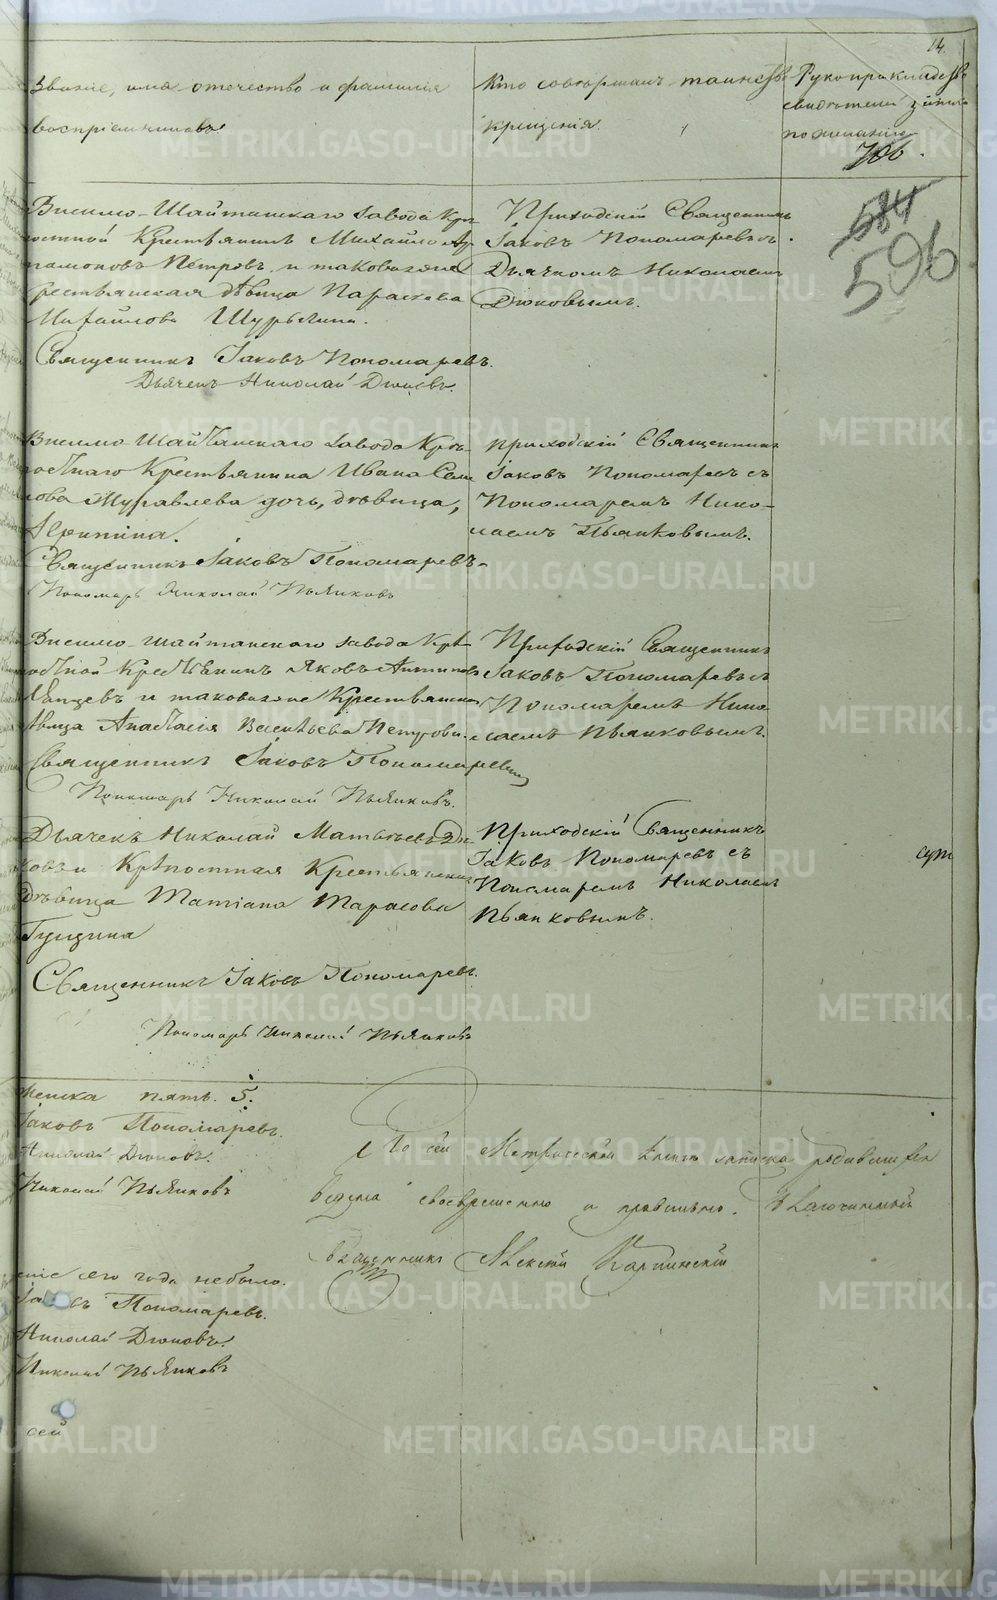 14.
Званіе, имя отечество и фамилія
воспріемниковъ
Кто совершалъ таинство
крещенія.
Рукоприкладство
свидѣтелей записи
по желанію
706.
584
596
Висимо-Шайтанскаго завода Крѣ-
постной Крестьянинъ Михайло Ар-
тамоновъ Петровъ и таковагоже
Крестьянская дѣвица Параскева
Михайлова Щурыгина.
Священникъ Іаковъ Пономаревъ.
Дьячекъ Николай Дюковъ.
Приходскій Священникъ
Іаковъ Пономаревъ съ
Дьячкомъ Николаемъ
Дюковымъ.
Висимо-Шайтанскаго завода Крѣ-
постнаго Крестьянина Ивана
Журавлева дочь, дѣвица,
Священникъ Іаковъ Пономаревъ
Пономарь Николай Пьянковъ
Приходскій Священникъ
Іаковъ Пономаревъ съ
Пономаремъ Нико-
лаемъ Пьянковымъ.
Висимо-шайтанского завода Крѣ-
постной Крестьянинъ Яковъ Антиповъ
и таковагоже Крестьянская
дѣвица Анастасія Васильева Петрова.
Священникъ Іаковъ Пономаревъ
Пономарь Николай Пьянковъ.
Приходскій Священникъ
Іаковъ Пономаревъ съ
Пономаремъ Нико-
лаемъ Пьянковымъ.
Дьячекъ Николай Матвѣевъ Дю-
ковъ и Крѣпостная Крестьянская
Дѣвица Татіана Тарасова
Гущина
Священникъ Іаковъ Пономаревъ.
Пономарь Николай Пьянковъ
Приходскій Священникъ
Іаковъ Пономаревъ съ
Пономаремъ Николаемъ
Пьянковымъ.
женска пять. 5.
Іаковъ Пономаревъ.
Николай Дюковъ.
Николай Пьянковъ
По сей Метрической Книги записка родившихся
ведена своевременно и правильно. Благочинный
Священникъ Алексій Карпинскій
сего года небыло.
Іаковъ Пономаревъ.
Николай Дюковъ.
Николай Пьянковъ
сей
METRIKI.GASO-URAL.RU